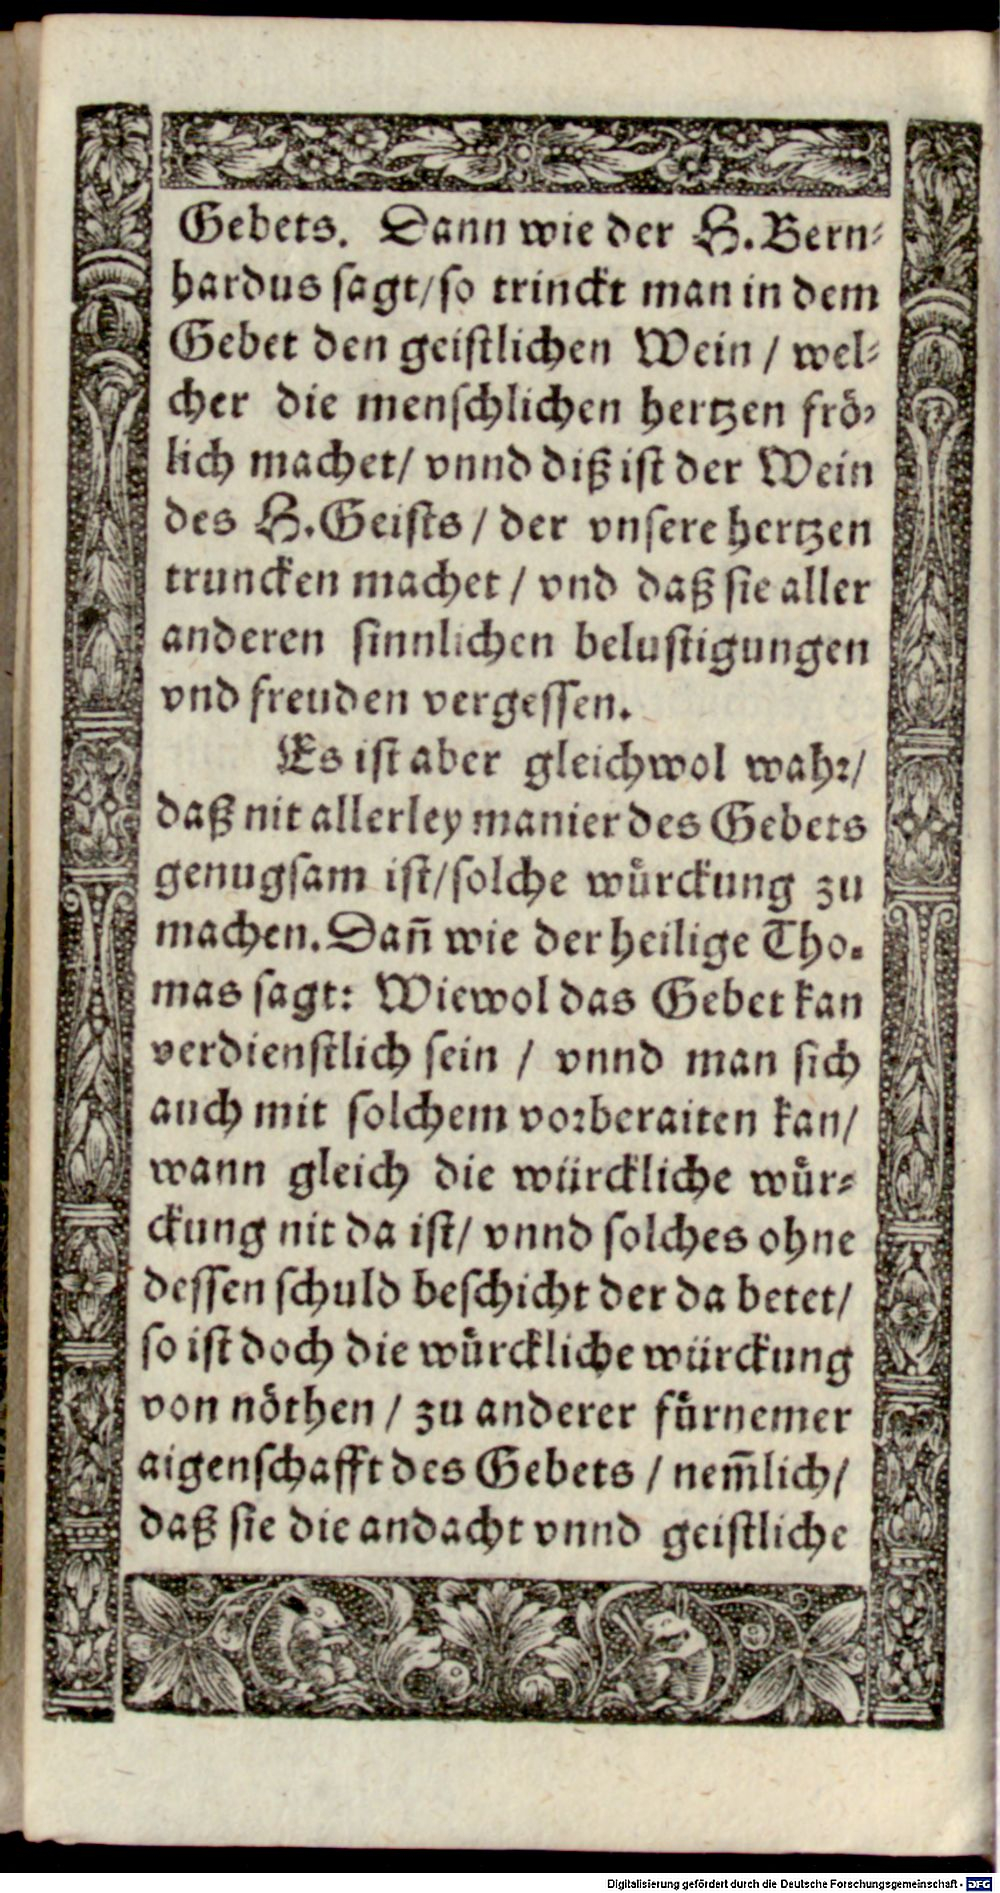 Gebets. Dann wie der H. Bern⸗
hardus sagt/ so trinckt man in dem
Gebet den geistlichen Wein / wel⸗
cher die menschlichen hertzen frö⸗
lich machet/ vnnd diß ist der Wein
des H. Geists / der vnsere hertzen
truncken machet / vnd daß sie aller
anderen sinnlichen belustigungen
vnd freuden vergessen.
Es ist aber gleichwol wahr/
daß nit allerley manier des Gebets
genugsam ist/ solche wuͤrckung zu
machen. Dañ wie der heilige Tho⸗
mas sagt: Wiewol das Gebet kan
verdienstlich sein / vnnd man sich
auch mit solchem vorberaiten kan/
wann gleich die würckliche wuͤr⸗
ckung nit da ist/ vnnd solches ohne
dessen schuld beschicht der da betet/
so ist doch die wuͤrckliche würckung
von nöthen / zu anderer fuͤrnemer
aigenschafft des Gebets / nem̃lich/
daß sie die andacht vnnd geistliche
Digitalisierung gefördert durch die Deutsche Forschungsgemeinschaft - DFG